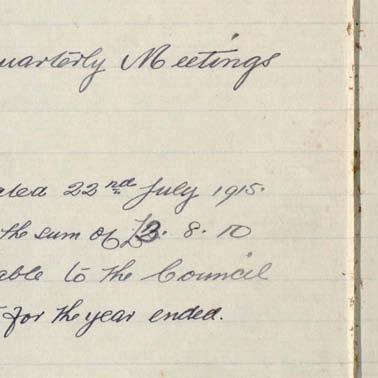 uarterly Meetings
ated 22nd July 1915.
the sum of £3. 8. 10
able to the Council
for the year ended.